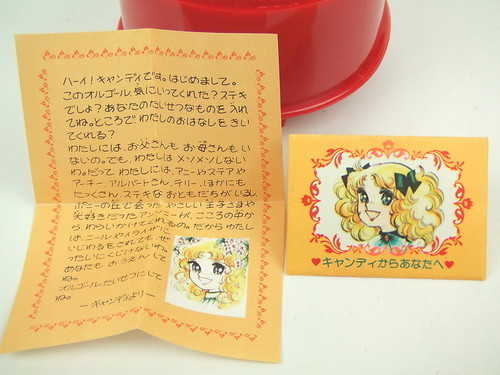 ハーイ！キャンディです。はじめまして。
このオルゴール、気にいってくれた？ステキ
でしょ？あなたのたいせつなものを入れ
てね。ところでわたしのおはなしをきい
てくれる？
わたしには、お父さんも お母さんも い
ないの。でも、わたしは メソメソしない
わ。だって わたしには、アニーやステアや
アーチー、アルバートさん、テリー、ほかにも
たっくさん、ステキな おともだちがいるし、
ぷにーの丘で会った やさしい王子さまや
大好きだった アンソニーが、こころの中か
ら、わらいかけてくれるもの。だから わたし
は、ニールやイライザに
いじわるをされても、ぜ
ったいにくじけないわ。
あなたも、おうえんして
ね。
オルゴール、たいせつにして
ね。
ーキャンディよりー
♥キャンディからあなたへ♥